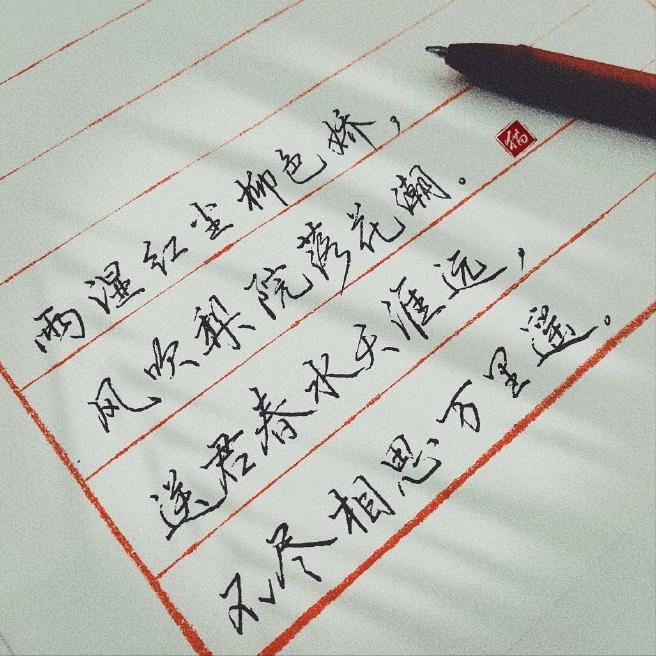 雨湿红尘柳色娇，
风吹梨院落花潮。
送君春水天涯远，
不尽相思万里遥。